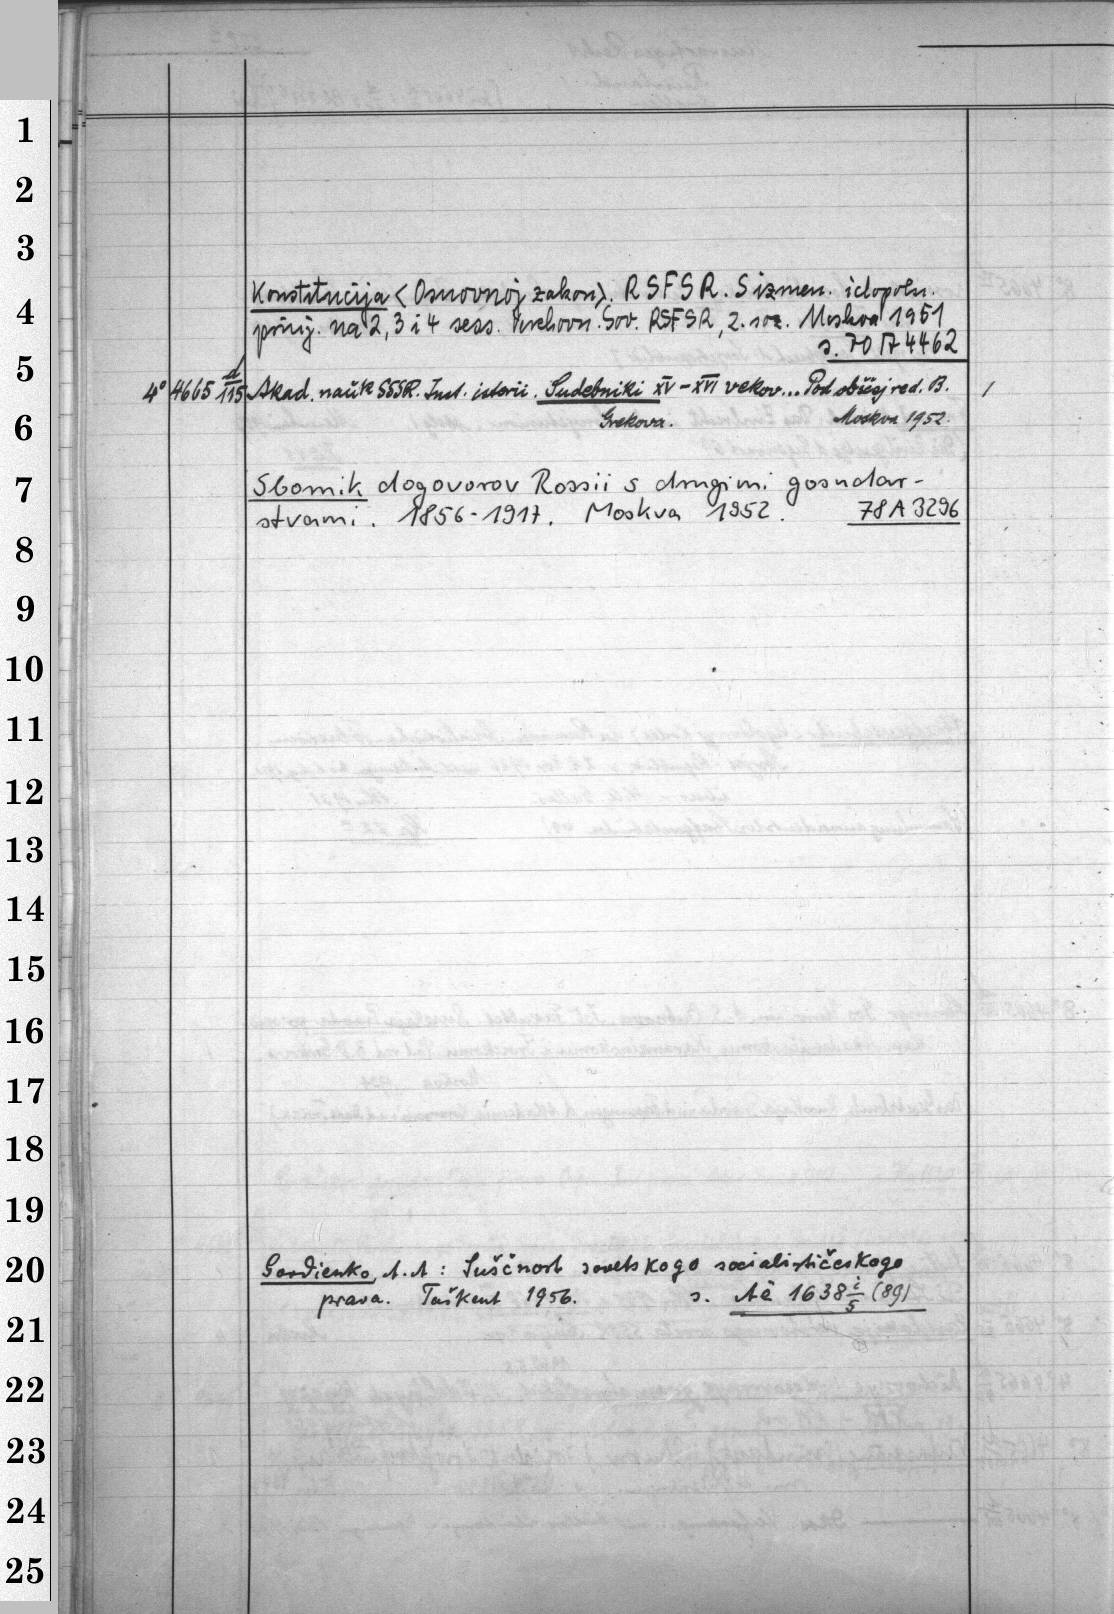 1
2
3
4
5
6
7
8
9
10
11
12
13
14
15
16
17
18
19
20
21
22
23
24
25
Konstitucija <Osnovnoj zakon>. RSFSR. S izmen. i dopoln.
prinj. na 2, 3 i 4 sess. Verchovn. Sov. RSFSR, 2. soz. Moskva 1951
s. 70 4462
4° 4665 d/115 Akad. nauk SSSR. Inst. istorii. Sudebniki XV-XVI vekov... Pod obščej red. B. 1
Grekova. Moskva 1952.
Sbornik dogovorov Rossii s drugimi gosudar-
stvami. 1856-1917. Moskva 1952. 78 A 3296
Gordienko, A.A: Suščnost sovetskogo socialističeskogo
prava. Taškent 1956. s. Ac 1638 i/5 (89)